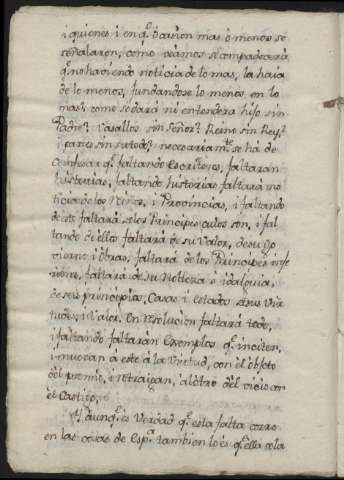 i quienes i en q.e ocasion mas ô menos se
señalaron, como veamos se compadecerà
q.e no haviendo noticia de lo mas, la haia
de lo menos, fundandose lo menos en lo
mas, como se darà ni entenderà hijo sin
Padre? Vasallos sin Señor? Reino sin Rey?
i partes sin su todo? necesariam.te se ha de
confesar q.e faltando Escritores, faltaràn
historias, faltando historias faltarà no
ticia de los Reinos, i Provincias, i faltando
de este faltarà de los Principes cuios son, i fal
tando de ellos faltarà de su Valor, de su Go
vierno i obras, faltarà de los Principes infe
riores, faltarà de su Nobleza ô idalguia,
de sus principios, Casas i estados de sus Vir
tudes, i Valor. En resolucion faltarà todo,
i faltando faltaràn Exemplos q.e inciten,
i muevan à este à la Virtud, con el objeto
del premio, i retraigan, al otro del vicio con
el Castigo.
I aunq.e es Verdad q.e esta falta corre
en las cosas de Esp.a tambien lo es q.e ella de la